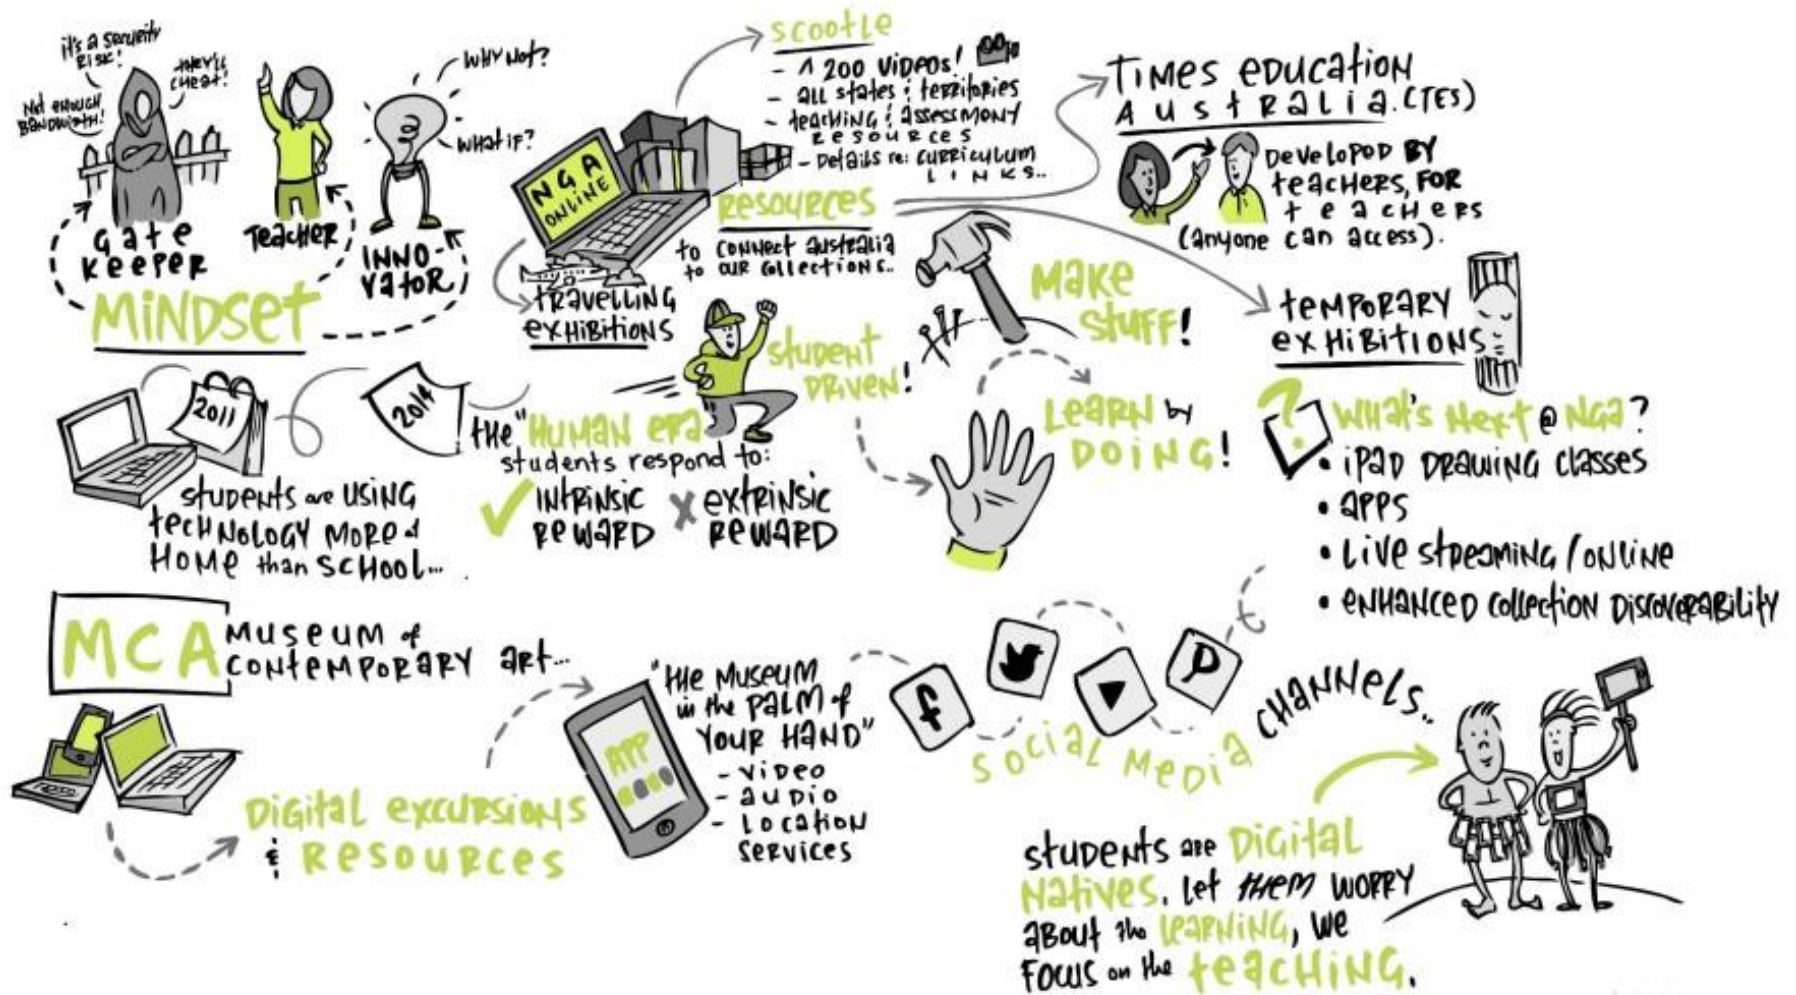 it's a security
risk!
they'll
cheat!
Not enough
bandwidth!
GATE
KEEPER
TEACHER
INNO-
VATOR
WHY NOT?
WHAT IF?
MINDSET
NGA
ONLINE
SCOOTLE
- 1200 VIDEOS!
- all states & territories
- teaching & assessmony
resources
- Details re: CURRICULUM
LINKS..
RESOURCES
to connect australia
to our collections..
TRAVELLING
EXHIBITIONS
TIMES EDUCATION
AUSTRALIA. (TES)
DEVELOPED BY
TEACHERS, FOR
TEACHERS
(anyone can access).
TEMPORARY
EXHIBITIONS
MAKE
STUFF!
STUDENT
DRIVEN!
LEARN by
DOING!
2011
2014
STUDENTS are USING
TECHNOLOGY MORE @
HOME than SCHOOL...
THE "HUMAN ERA
students respond to:
INTRINSIC
REWARD
EXTRINSIC
REWARD
? WHAT'S NEXT @ NGA?
• iPAD DRAWING CLASSES
• APPS
• LIVE STREAMING / ONLINE
• ENHANCED COLLECTION DISCOVERABILITY
MCA
MUSEUM of
CONTEMPORARY ART...
DIGITAL EXCURSIONS
& RESOURCES
APP
"THE MUSEUM
in the PALM of
YOUR HAND"
- VIDEO
- AUDIO
- LOCATION
SERVICES
f
SOCIAL MEDIA
CHANNELS..
STUDENTS are DIGITAL
NATIVES. Let THEM WORRY
ABOUT the LEARNING, WE
FOCUS on the TEACHING.